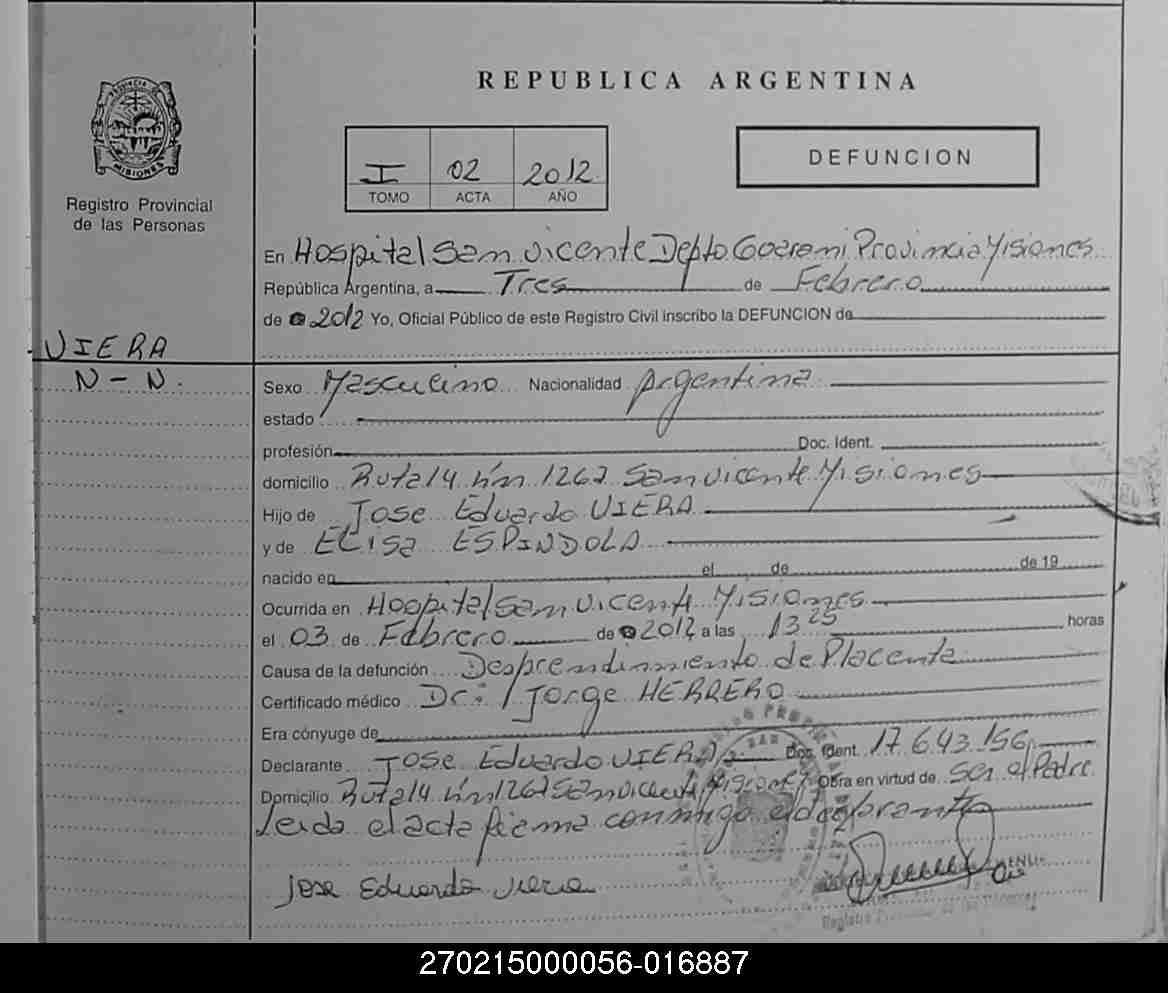 REPUBLICA ARGENTINA
PROVINCIA DE
MISIONES
Registro Provincial
de las Personas
I 02 2012
TOMO ACTA AÑO
DEFUNCION
En Hospital San vicente Depto Guarani Provincia Misiones
República Argentina, a Tres de Febrero
de 2012 Yo, Oficial Público de este Registro Civil inscribo la DEFUNCION de
VIERA
N-N.
Sexo Masculino Nacionalidad Argentina
estado
profesión Doc. Ident.
domicilio Ruta 14 km 1262 San vicente Misiones
Hijo de Jose Eduardo VIERA
y de ELisa ESPINDOLA
nacido en el de de 19
Ocurrida en Hospital San vicente Misiones
el 03 de Febrero de 2012 a las 13 25 horas
Causa de la defunción Desprendimiento de Placenta
Certificado médico Dr: Jorge HERRERO
Era cónyuge de
Declarante Jose Eduardo VIERA Doc. Ident. 17.643.156
Domicilio Ruta 14 km 1262 San vicente Misiones Obra en virtud de Ser el Padre
Leida el acta firma conmigo el declarante
Jose Eduardo Viera
270215000056-016887